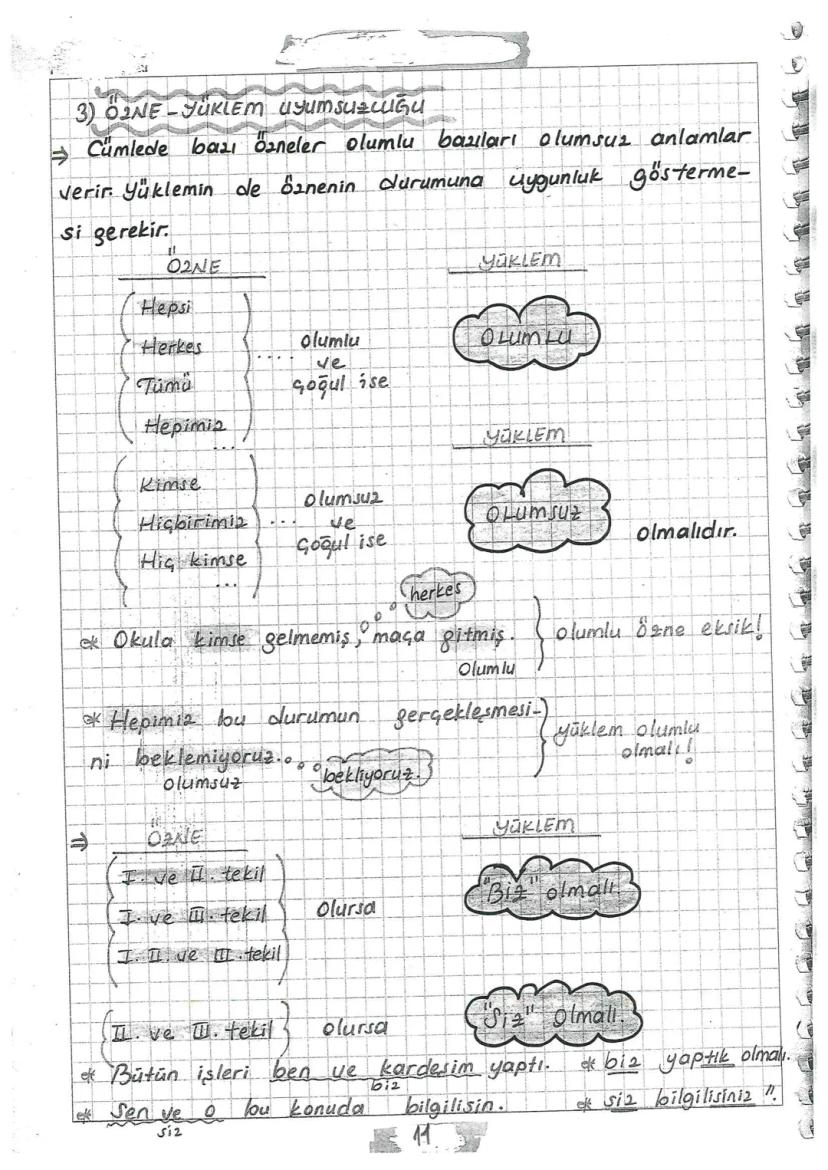 3) ÖZNE-YÜKLEM UYUMSUZLUĞU
⇒ Cümlede bazı özneler olumlu bazıları olumsuz anlamlar
verir. Yüklemin de öznenin durumuna uygunluk gösterme-
si gerekir.
ÖZNE YÜKLEM
Hepsi
Herkes
Tümü
Hepimiz
...
.... olumlu
ve
çoğul ise
OLUMLU
YÜKLEM
Kimse
Hiçbirimiz
Hiç kimse
...
... olumsuz
ve
çoğul ise
OLUMSUZ
olmalıdır.
herkes
* Okula kimse gelmemiş, maça gitmiş. } olumlu özne eksik!
Olumlu
* Hepimiz bu durumun gerçekleşmesi-
ni beklemiyoruz.
olumsuz
bekliyoruz.
yüklem olumlu
olmalı!
⇒ ÖZNE YÜKLEM
I. ve II. tekil
I. ve III. tekil
I. II. ve III. tekil
Olursa
"Biz" olmalı.
II. ve III. tekil olursa
"Siz" Olmalı.
* Bütün işleri ben ve kardeşim yaptı. * biz yaptık olmalı.
biz
* Sen ve o bu konuda bilgilisin. * siz bilgilisiniz ".
siz
11